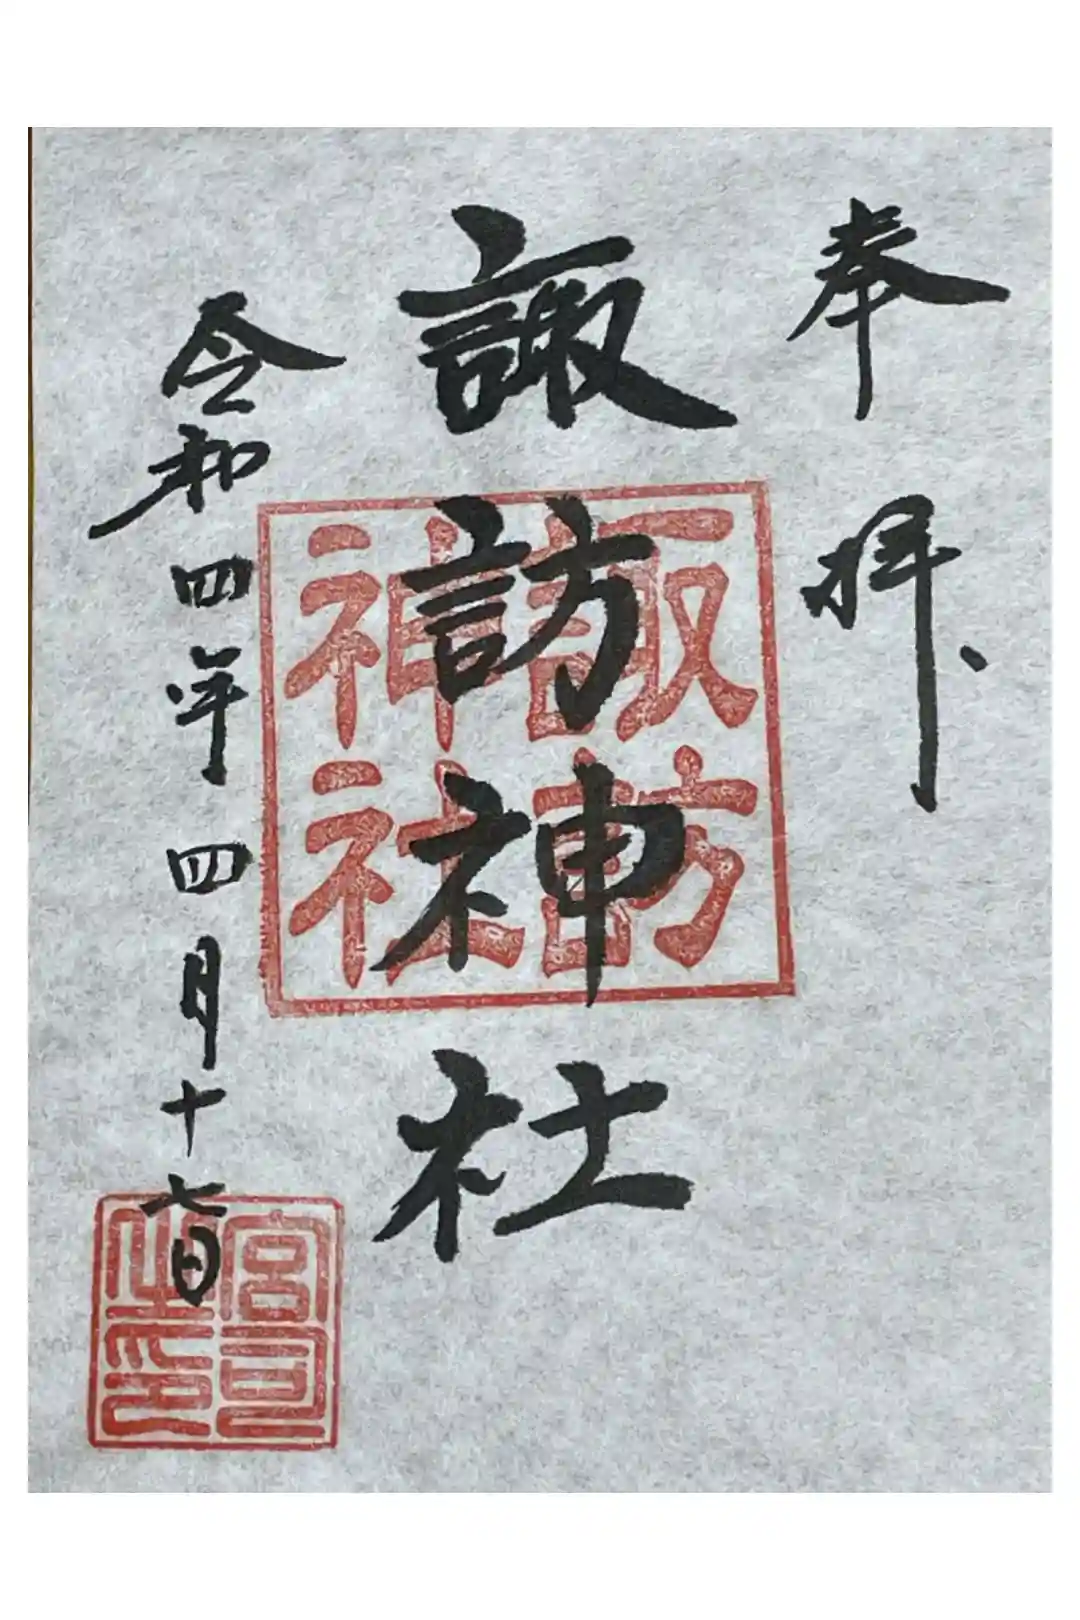 奉拝
諏訪神社
令和四年四月十七日
諏訪
神社
宮司
之印